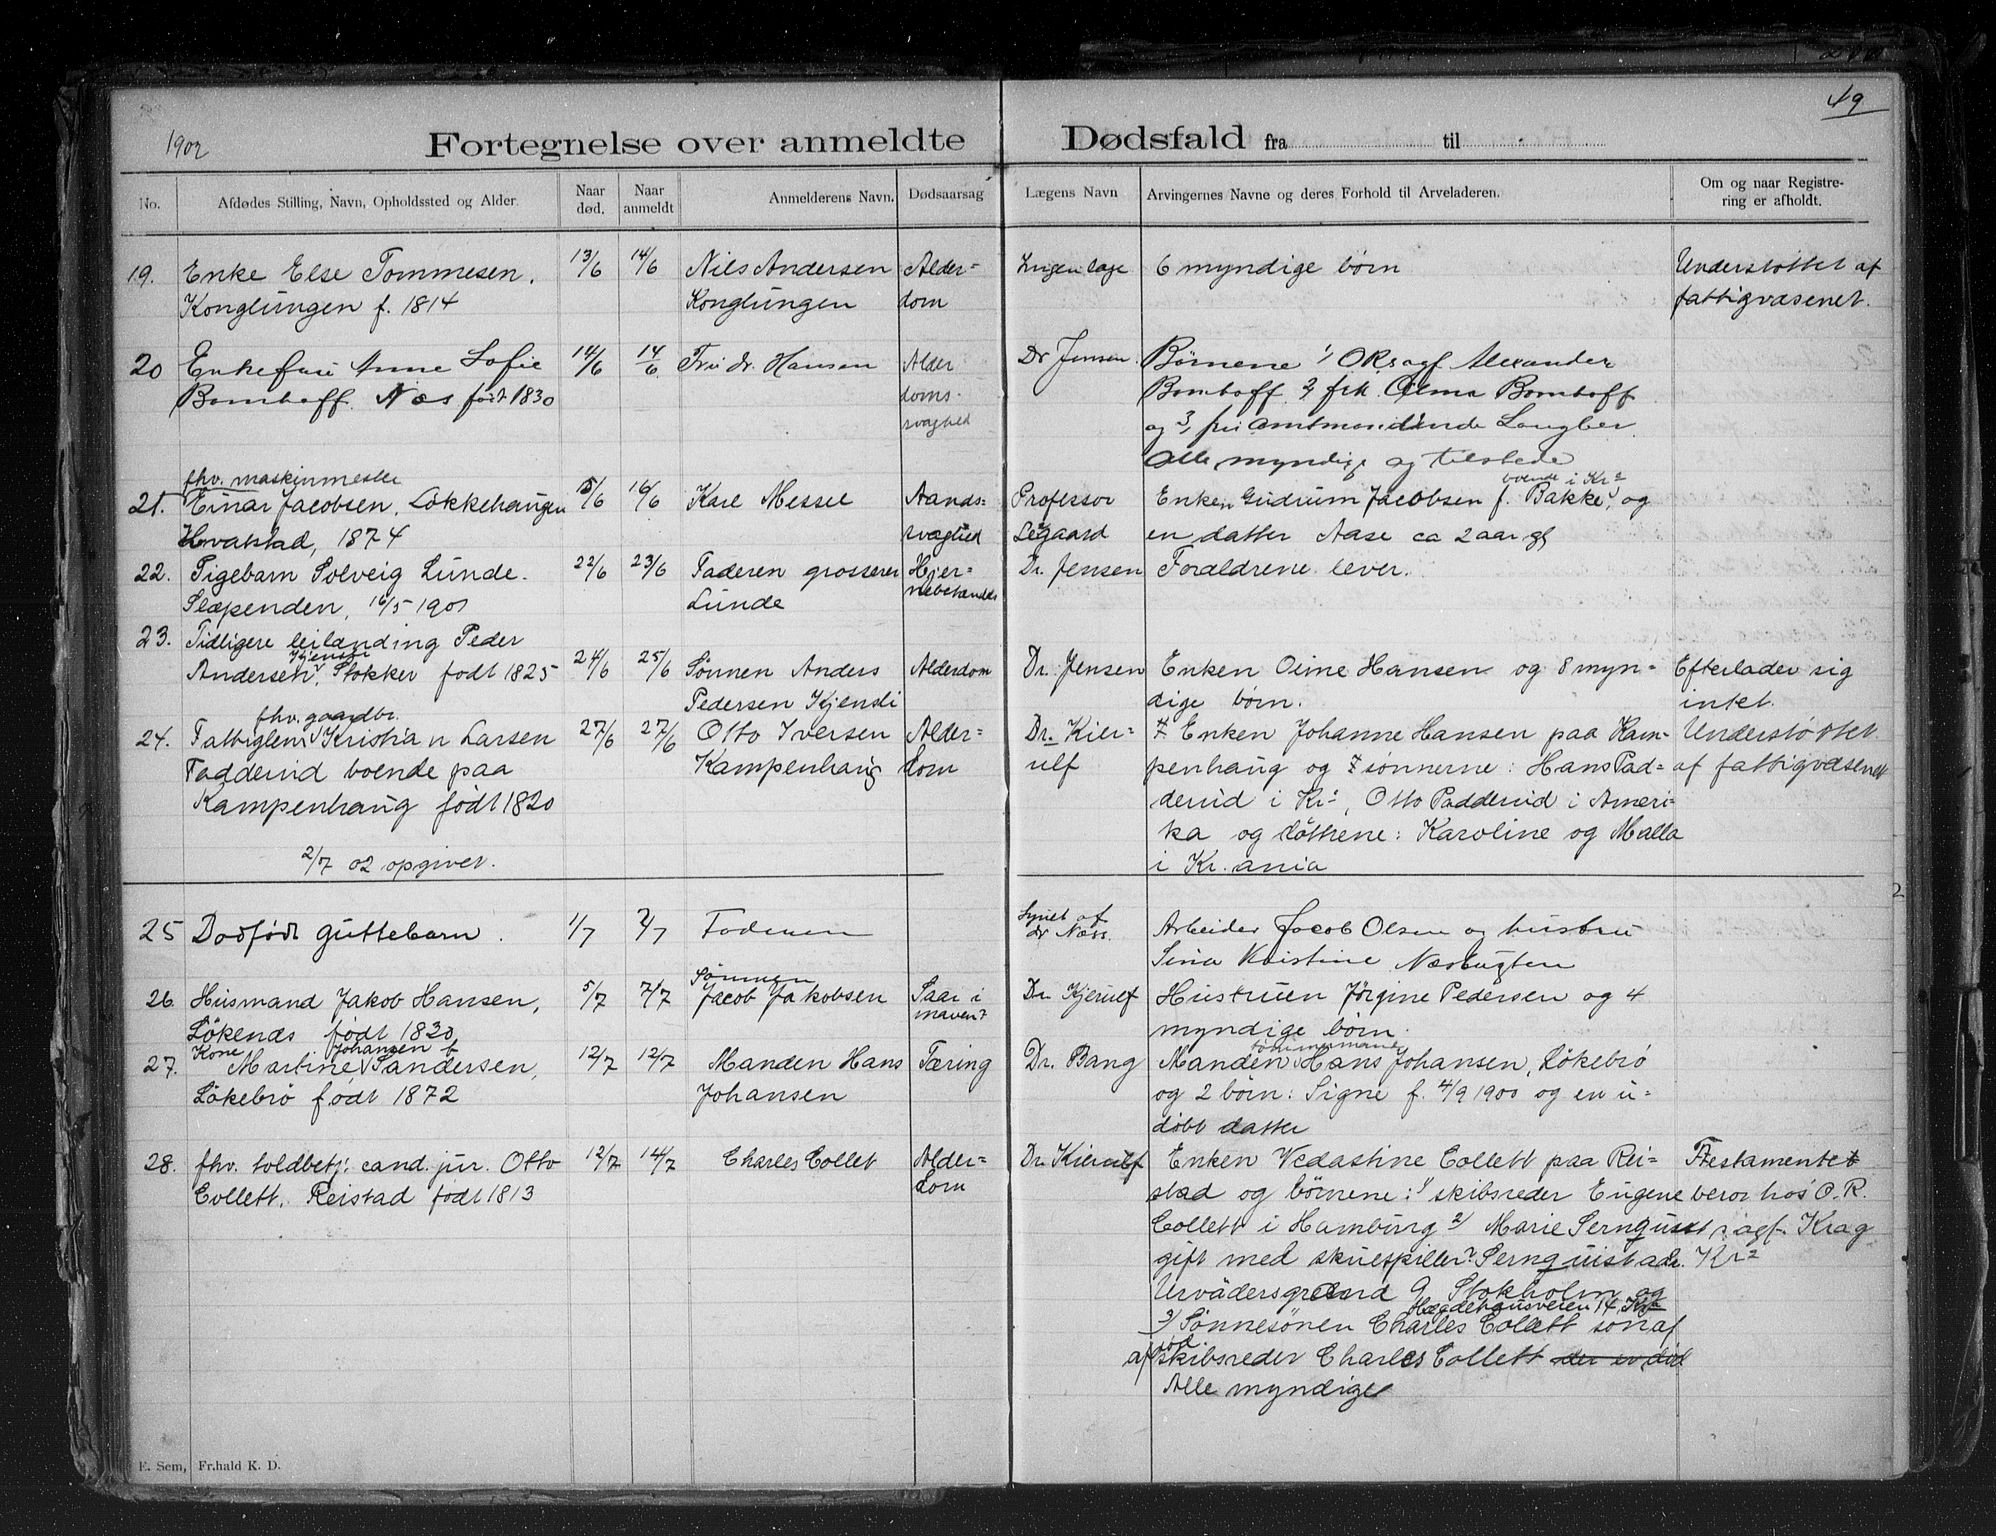 49
1902
Fortegnelse over anmeldte Dødsfald fra til
No.
Afdødes Stilling, Navn, Opholdssted og Alder
Naar død.
Naar anmeldt
Anmelderens Navn.
Dødsaarsag
Lægens Navn
Arvingernes Navne og deres Forhold til Arveladeren.
Om og naar Registrering er afholdt.
19. Enke Else Tommesen, 13/6 14/6 Nils Andersen Alder= Ingen læge 6 myndige børn Understøttet af
Konglungen f. 1814 Konglungen dom fattigvæsenet.
20 Enkefru Anne Sofie 14/6 14/6 Fru dr. Hansen Alder Dr Jensen. Børnene 1/ ORsagf Alexander
Bomhoff. Næs født 1830 doms. Bomhoff 2, frk. Alma Bomhoff
svaghed og 3, fru Langber
Alle myndige og tilstede
fhv. maskinmester boende i Kr=
21. Einar Jacobsen, Løkkehaugen 15/6 16/6 Karl Messel Aands= Professor Enken Gudrum Jacobsen f. Bakke, og
Hvalstad, 1874 svaghed Legaard en datter Aase ca 2 aar gl
22. Pigebarn Solveig Lunde. 22/6 23/6 Faderen grosserer Hjer= Dr. Jensen Forældrene lever.
Slæpenden, 16/5 1901 Lunde
23. Tidligere leilænding Peder
Kjensli
Andersen, Stokker født 1825 24/6 25/6 Sønnen Anders Alderdom Dr. Jensen Enken Oline Hansen og 8 myn= Efterlader sig
Pedersen Kjensli dige børn. intet.
fhv. gaardbr.
24. Fattiglem Kristian Larsen 27/6 27/6 Otto Iversen Alder= Dr. Kier= Enken Johanne Hansen paa Kam= Understøttet
Padderud boende paa Kampenhaug dom ulf penhaug og sønnerne: Hans Pad= af fattigvæsenet
Kampenhaug født 1820 derud i Kr=, Otto Padderud i Ameri=
ka og døttrene: Karoline og Malla
2/7 02 opgivet. i Kr.ania
25 Dødfødt guttebarn. 1/7 2/7 Faderen Synet af Arbeider Jacob Olsen og hustru
dr Næss. Sina Kristine Næsbugten
Sønnen
26. Husmand Jakob Hansen, 5/7 7/7 Jacob Jakobsen Saar i Dr. Kjerulf Hustruen Jørgine Pedersen og 4
Løkenæs født 1830 maven? myndige børn.
Kone Johansen f. tømmermand
27. Martine Sandersen, 12/7 12/7 Manden Hans Tæring Dr. Bang Manden Hans Johansen, Løkebrø
Løkebrø født 1872 Johansen og 2 børn: Signe f. 4/9 1900 og en u=
døbt datter
28. fhv. toldbetj. cand. jur. Otto 12/7 14/7 Charles Collet Alder= Dr. Kierulf Enken Vedastine Collett paa Rei= Testamentet
Collett, Reistad født 1813 dom stad og børnene: 1/ skibsreder Eugene beror hos O.R.
Collett i Hamburg 2/ Marie Sernquist sagf. Krag
gift med skuespiller Sernquist adr. Kr=
Urvädersgränd 9 Stokholm og
Hægdehaugsveien 14 Kr=
3/ Sønnesønen Charles Collett søn af
død
af skibsreder Charles Collett der er død
Alle myndige
E. Sem, Fr.hald K. D.